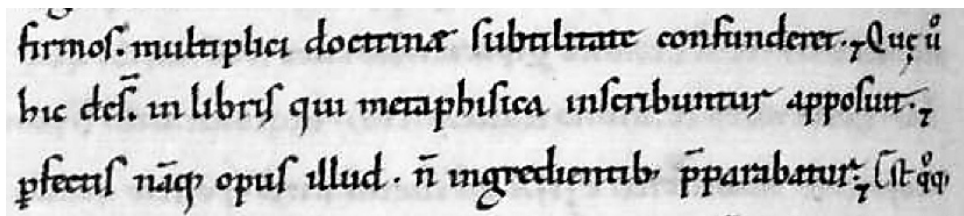 firmoſ. multiplici doctrinæ ſubtilitate confunderet. Quę uͦ
hic deſ̅. in libriſ qui metaphiſica inſcribuntur appoſuit.
ꝑfectiſ nāq; opuſ illud. n̄ ingredientib; p̄parabatur. Eſt qͦq;